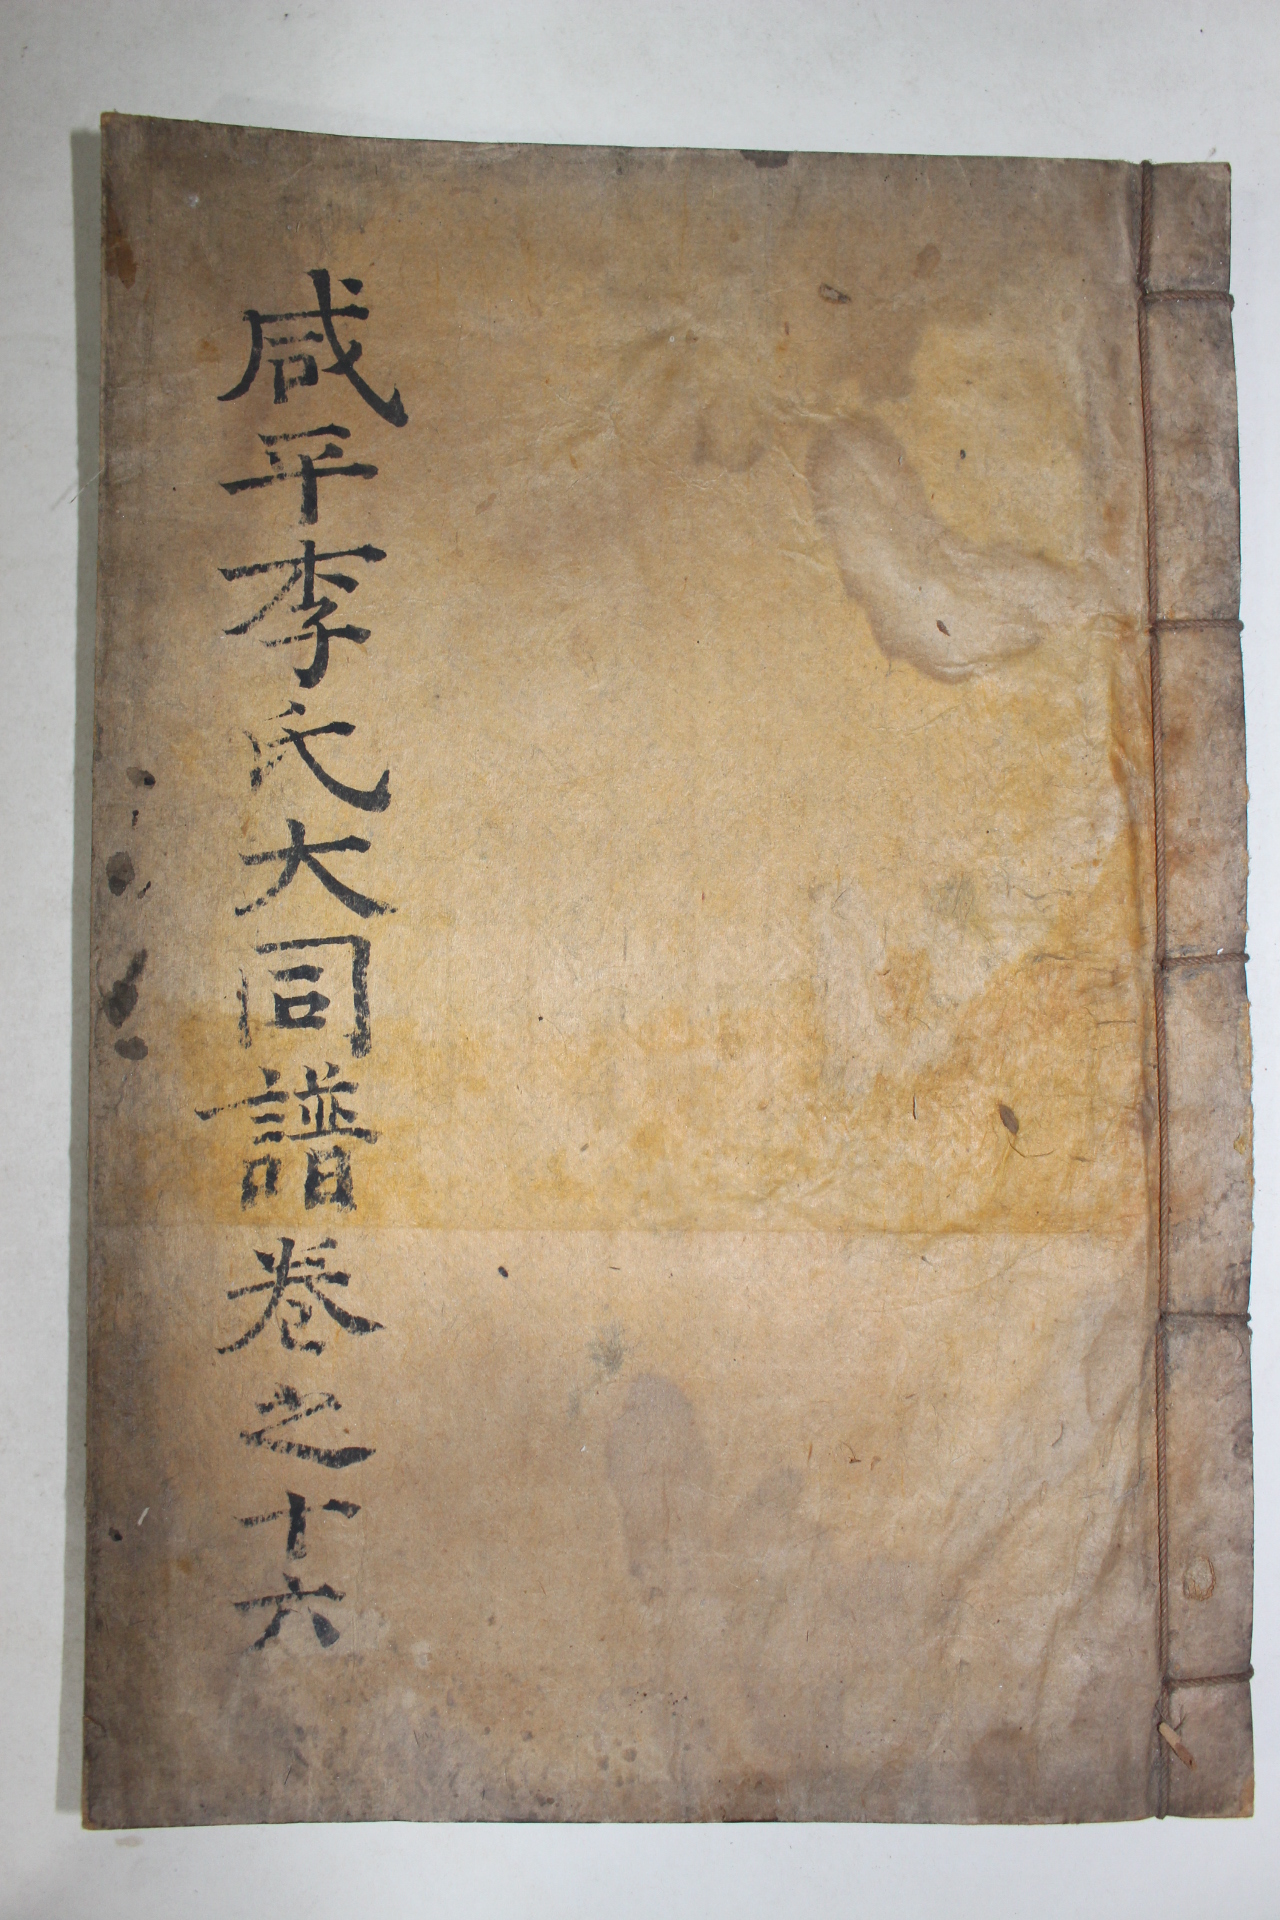 咸平李氏大同譜卷之十六